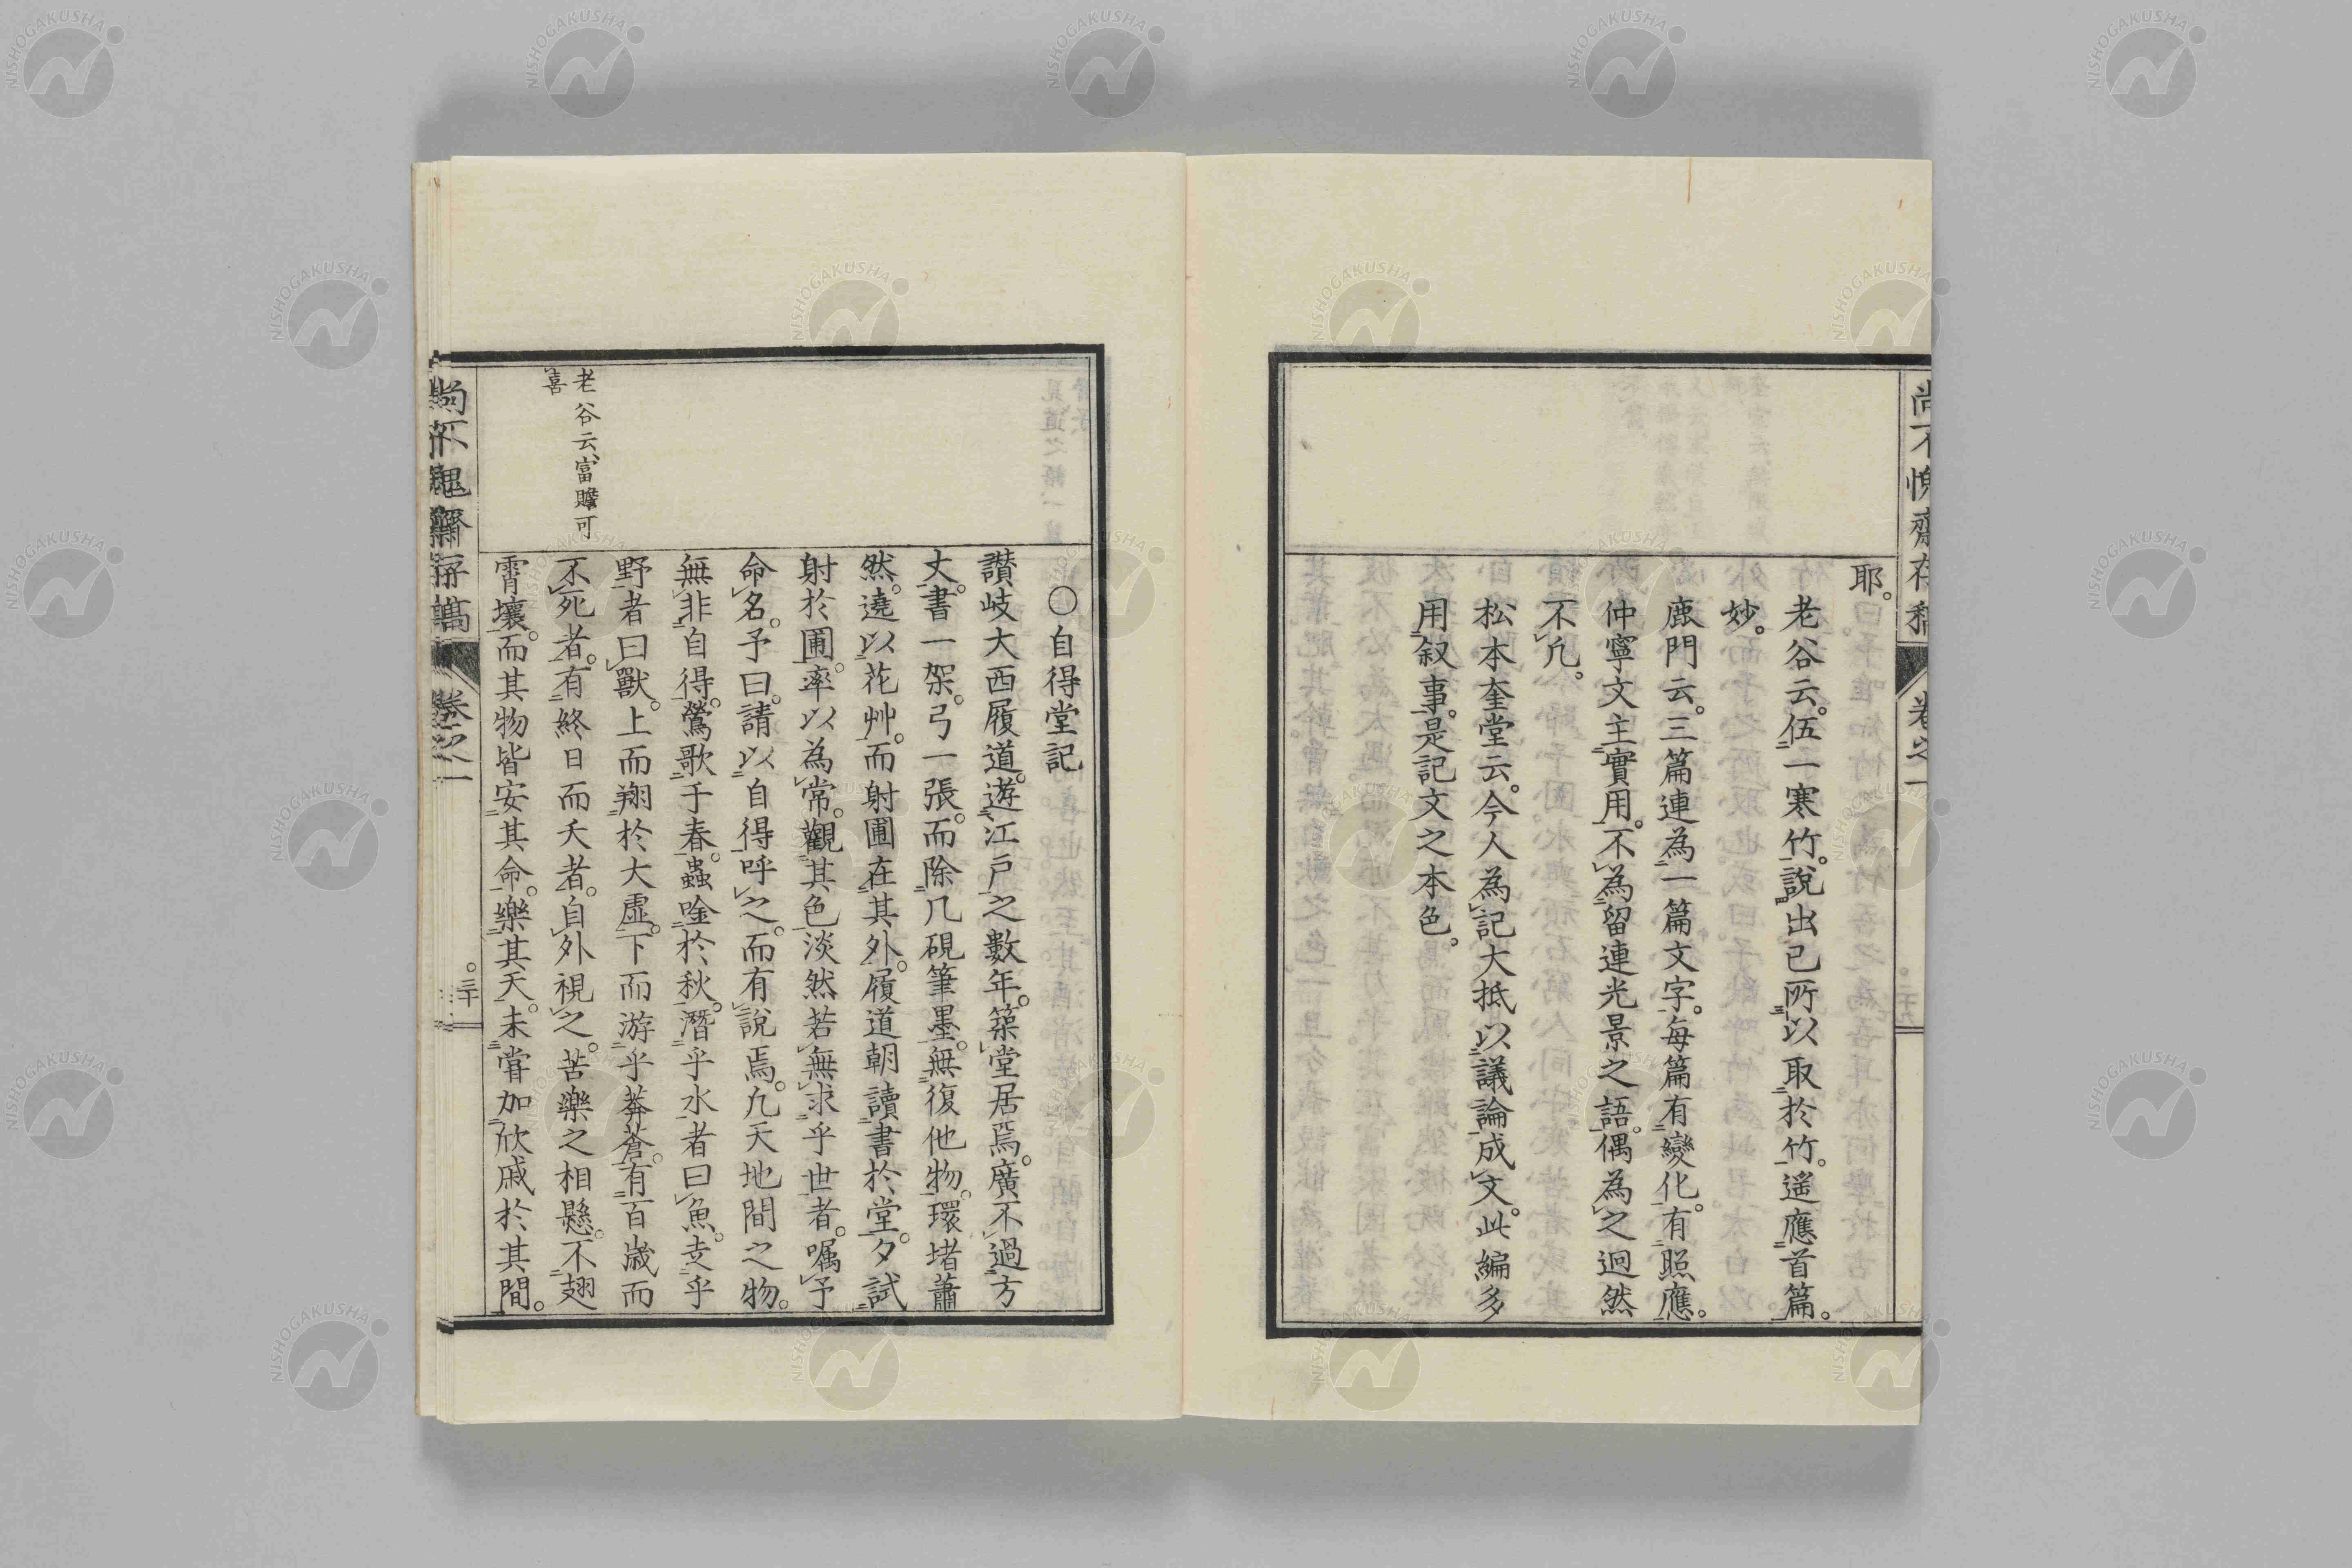 耶。
老谷云。伍一寒竹。說出已所以取於竹。遥應首篇。
妙。
鹿門云。三篇連為一篇文字。每篇有變化。有照應。
仲寧文主實用。不為留連光景之語。偶為之迥然
不凢。
松本奎堂云。今人為記大抵以議論成文。此編多
用叙事。是記文之本色。
尚不愧齋存稿 卷之一
〇自得堂記
讃岐大西履道。遊江戸之數年。築堂居焉。廣不過方
丈。書一架。弓一張。而除几硯筆墨。無復他物。環堵蕭
然。遶以花艸。而射圃在其外。履道朝讀書於堂。夕試
射於圃。率以為常。觀其色淡然若無求乎世者。嘱予
命名。予曰。請以自得呼之。而有說焉。凢天地間之物。
無非自得。鶯歌于春。蟲唫於秋。潛乎水者曰魚。走乎
野者曰獸。上而翔於大虛。下而游乎莽蒼。有百歳而
不死者。有終日而夭者。自外視之。苦樂之相懸。不翅
霄壤。而其物皆安其命。樂其天。未甞加欣戚於其間。
老谷云、富贍可
喜
尚不愧齋存稿 卷之一 〇三十
NISHOGAKUSHA